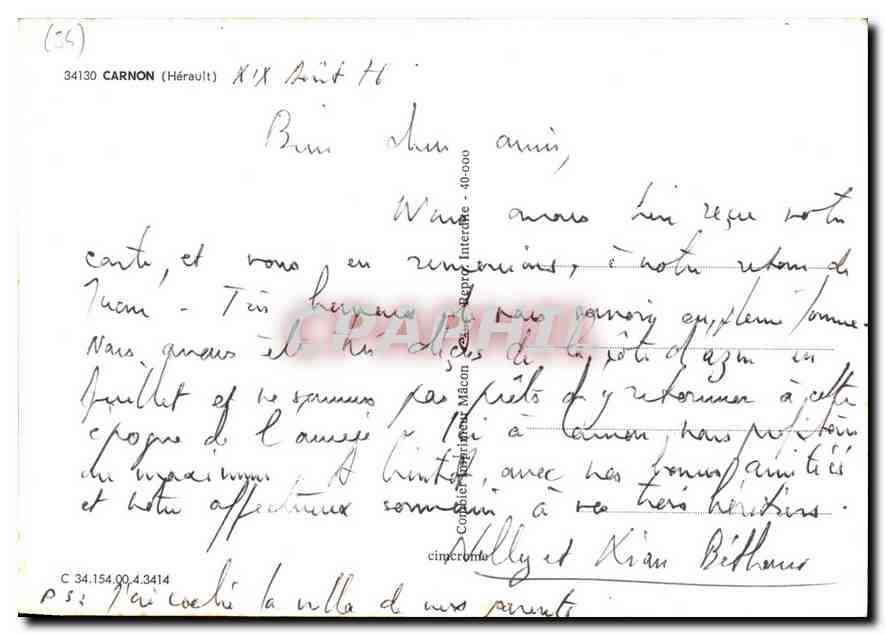 (34)
34130 CARNON (Hérault) XIX Août 76
Bien chers amis,
Nous avons bien reçu votre
carte, et vous en remercions, à notre retour de
Juan - Très heureux de vous savoir en pleine forme.
Nous avons été très déçus de la côte d'azur en
Juillet et ne sommes pas prêts d'y retourner à cette
époque de l'année - Ici à Carnon, nous profitons
au maximum. A bientôt, avec nos bonnes amitiés
et notre affectueux souvenir à vos trois héritiers.
Nelly et
PS: J'ai coché la villa de mes parents
C 34.154.00.4.3414
cimcrome
Combier Imprimeur Mâcon Repro. Interdite - 40-000
CPAPHIL